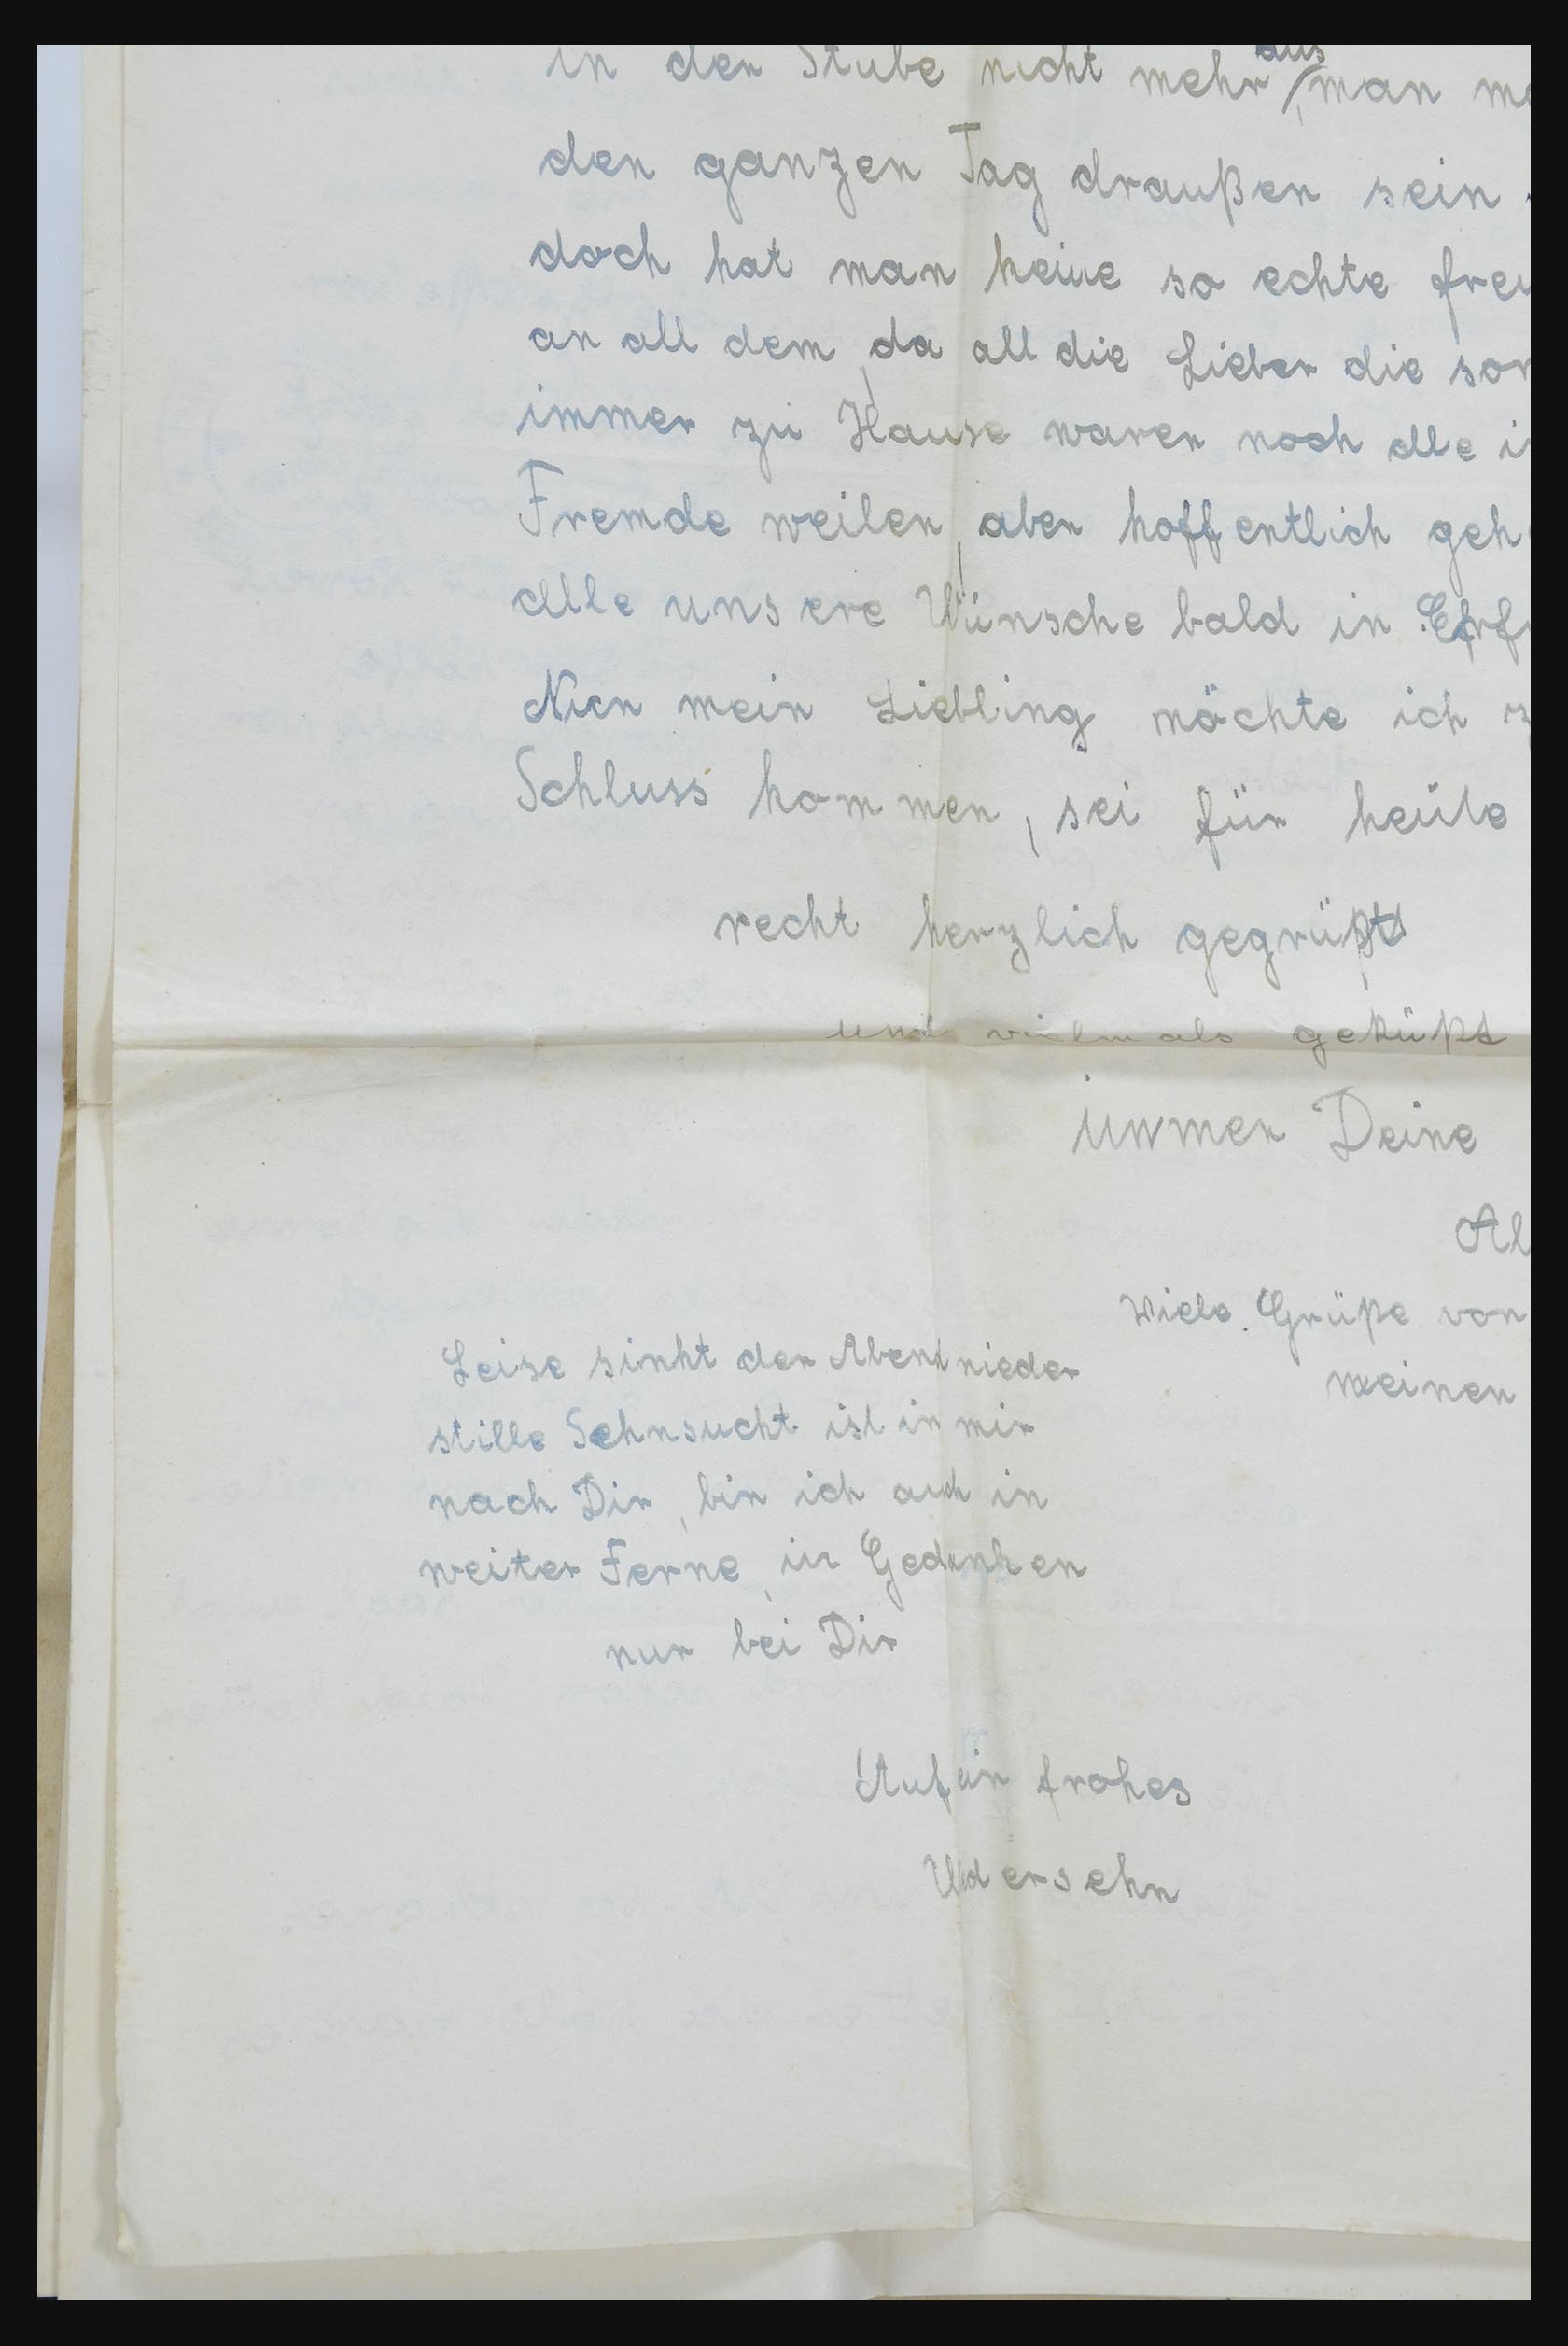 in der Stube nicht mehr aus, man
den ganzen Tag draußen sein
doch hat man keine so echte
an all dem, da all die Lieben die
immer zu Hause waren noch alle
Fremde weilen, aber hoffentlich
alle unsere Wünsche bald in
Nun mein Liebling möchte ich
Schluss kommen, sei für heute
recht herzlich gegrüßt
und vielmals geküßt
immer Deine
Viele Grüße von
meinen
Leise sinkt der Abend nieder
stille Sehnsucht ist in mir
nach Dir, bin ich auch in
weiter Ferne, in Gedanken
nur bei Dir
Auf ein frohes
Widersehn